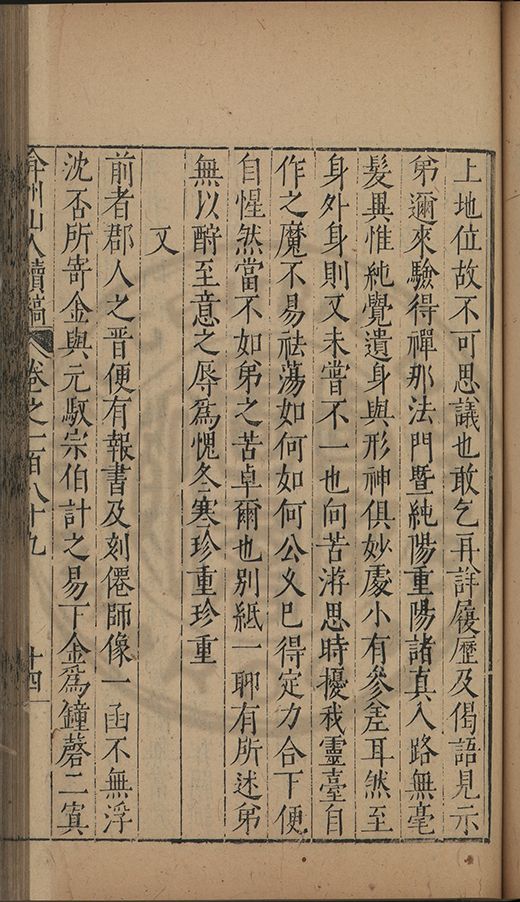 上地位故不可思議也敢乞再詳履歷及偈語見示
弟邇來驗得禪那法門暨純陽重陽諸真入路無毫
髮異惟純覺遺身與形神俱妙處小有參差耳然至
身外身則又未嘗不一也向苦游思時擾我靈臺自
作之魔不易祛蕩如何如何公乂已得定力合下便
自惺然當不如弟之苦卓爾也別紙一聊有所述弟
無以酧至意之辱為愧冬寒珍重珍重
又
前者郡人之晉便有報書及刻僊師像一函不無浮
沈否所寄金與元馭宗伯計之易下金為鐘磬二寘
弇州山人續稿 卷之一百八十九 十四